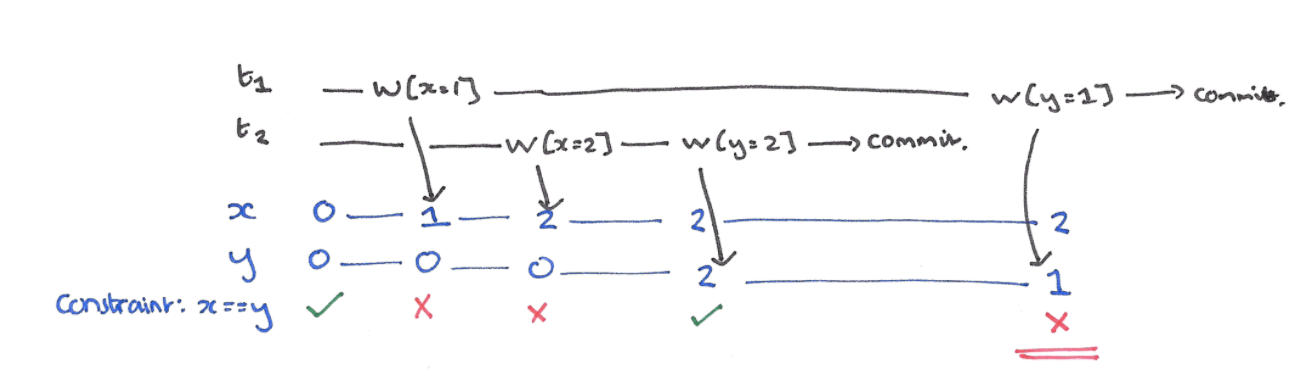 t1 W[x=1] w[y=1] → commit.
t2 W[x=2] w[y=2] → commit.
x 0 1 2 2 2
y 0 0 0 2 1
Constraint: x==y ✓ x x ✓ x